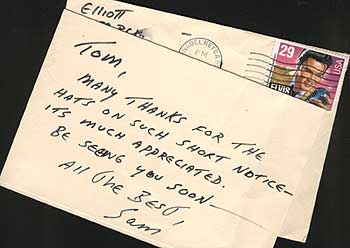 Elliott
DEL REY CA
PM
29
USA
ELVIS
TOM,
MANY THANKS FOR THE
HATS ON SUCH SHORT NOTICE—
ITS MUCH APPRECIATED.
BE SEEING YOU SOON—
ALL THE BEST!
Sam